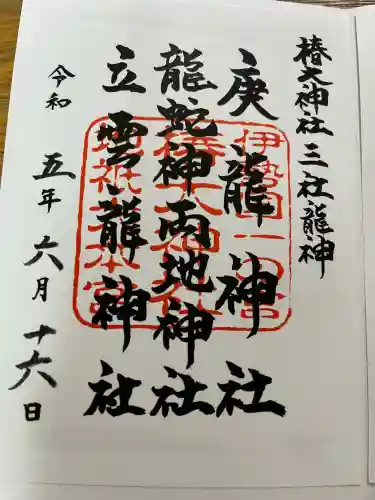 椿大神社三社龍神
庚龍神社
龍蛇神両地神社
立雲龍神社
令和五年六月十六日
伊勢国一の宮
椿大神社
地祇大本宮